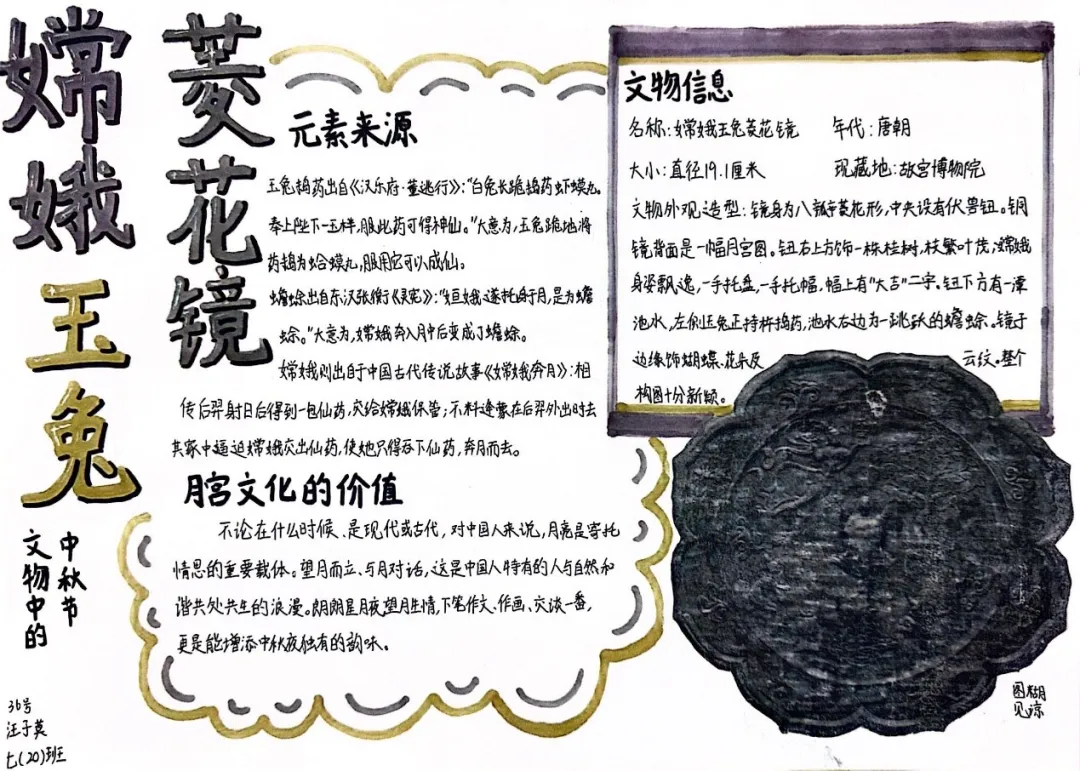 嫦娥玉兔
菱花镜
文物中的
中秋节
36号
汪子英
七(20)班
元素来源
玉兔捣药出自《汉乐府·董逃行》:"白兔长跪捣药虾蟆丸。
奉上陛下一玉柈,服此药可得神仙。"大意为,玉兔跪地将
药捣为蛤蟆丸,服用它可以成仙。
蟾蜍出自东汉张衡《灵宪》:"姮娥遂托身于月,是为蟾
蜍。"大意为,嫦娥奔入月中后变成了蟾蜍。
嫦娥则出自于中国古代传说故事《嫦娥奔月》:相
传后羿射日后得到一包仙药,交给嫦娥保管;不料逢蒙在后羿外出时去
其家中逼迫嫦娥交出仙药,使她只得吞下仙药,奔月而去。
月宫文化的价值
不论在什么时候、是现代或古代,对中国人来说,月亮是寄托
情思的重要载体。望月而立、与月对话,这是中国人特有的人与自然和
谐共处共生的浪漫。朗朗星月夜望月生情,下笔作文、作画、交谈一番,
更是能增添中秋夜独有的韵味。
文物信息
名称:嫦娥玉兔菱花镜 年代:唐朝
大小:直径19.1厘米 现藏地:故宫博物院
文物外观造型:镜身为八瓣菱花形,中央设有伏兽钮。铜
镜背面是一幅月宫图。钮右上方饰一株桂树,枝繁叶茂;嫦娥
身姿飘逸,一手托盘,一手托幅,幅上有"大吉"二字。钮下方有一潭
池水,左侧玉兔正持杵捣药,池水右边为一跳跃的蟾蜍。镜子
边缘饰蝴蝶、花朵及 云纹。整个
构图十分新颖。
图糊
见谅